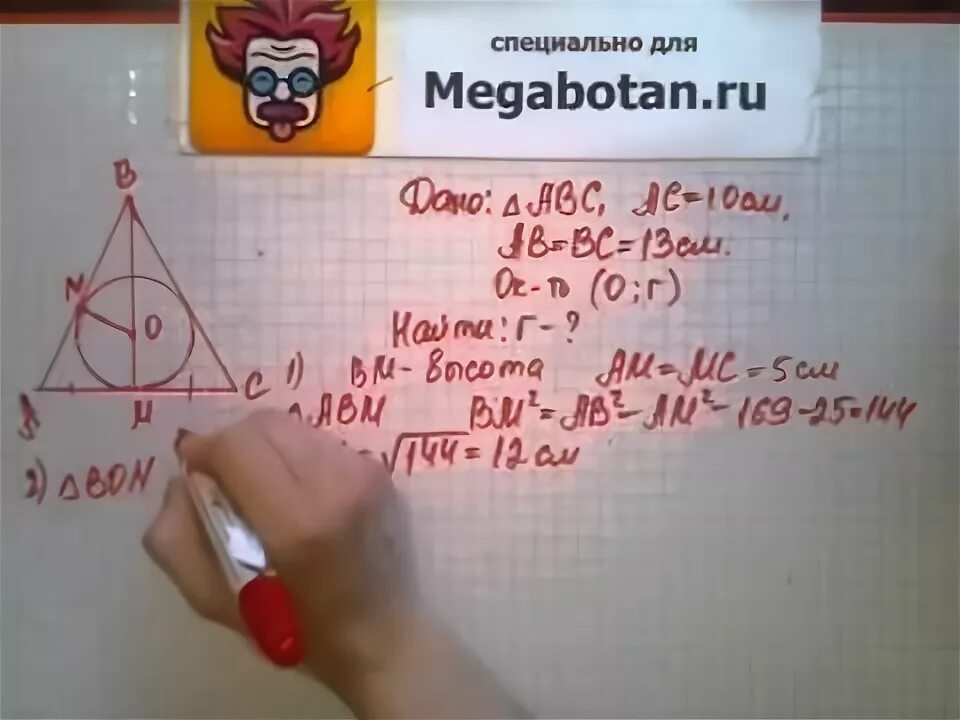 специально для
Megabotan.ru
B
N
O
A
M
C
Дано: △ABC, AC=10см,
AB=BC=13см.
Ок-ть (O;r)
Найти: r-?
1) BM-высота AM=MC=5см
△ABM BM²=AB²-AM²-169-25=144
=√144=12см
2) △BON